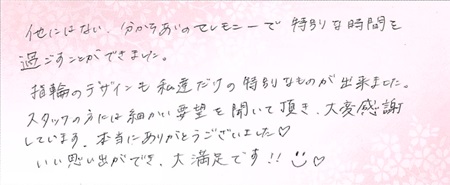 他にはない、分かちあいのセレモニーで特別な時間を
過ごすことができました。
指輪のデザインも私達だけの特別なものが出来ました。
スタッフの方には細かい要望を聞いて頂き、大変感謝
しています。本当にありがとうございました♡
いい思い出ができ、大満足です!!☺♡